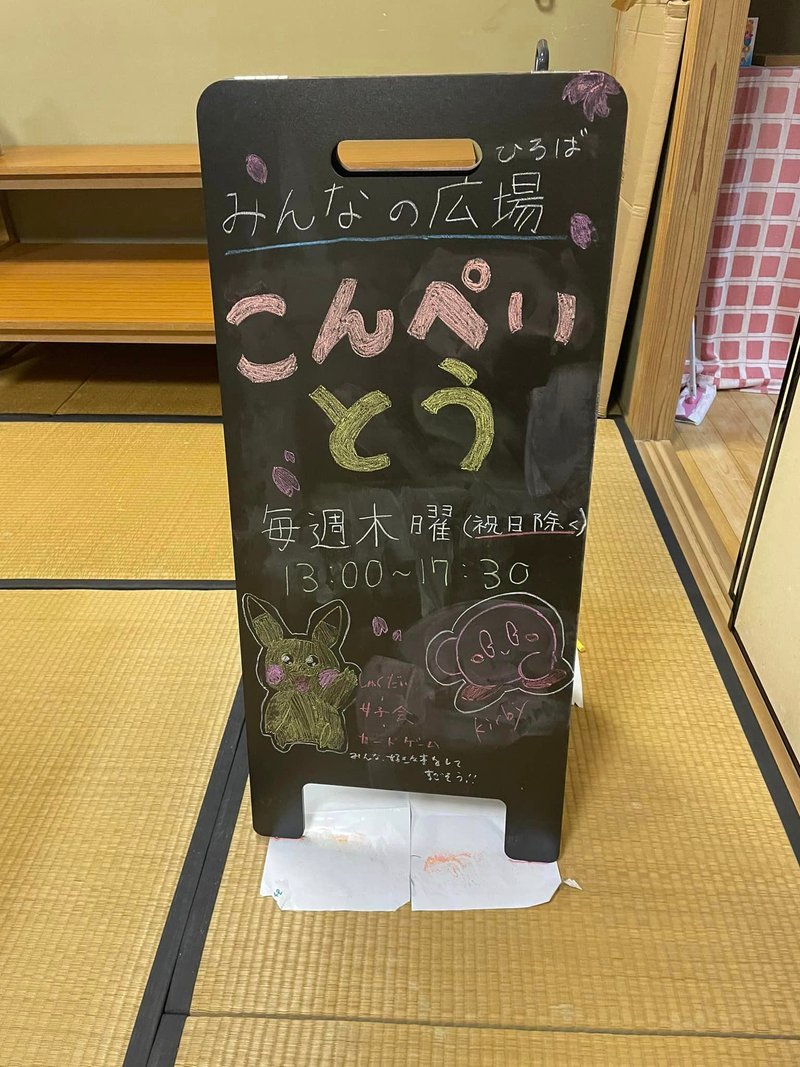 ひろば
みんなの広場
こんぺい
とう
毎週木曜(祝日除く)
13:00~17:30
しゅくだい
女子会
カードゲーム
kirby
みんな、好きな事をして
すごそう!!